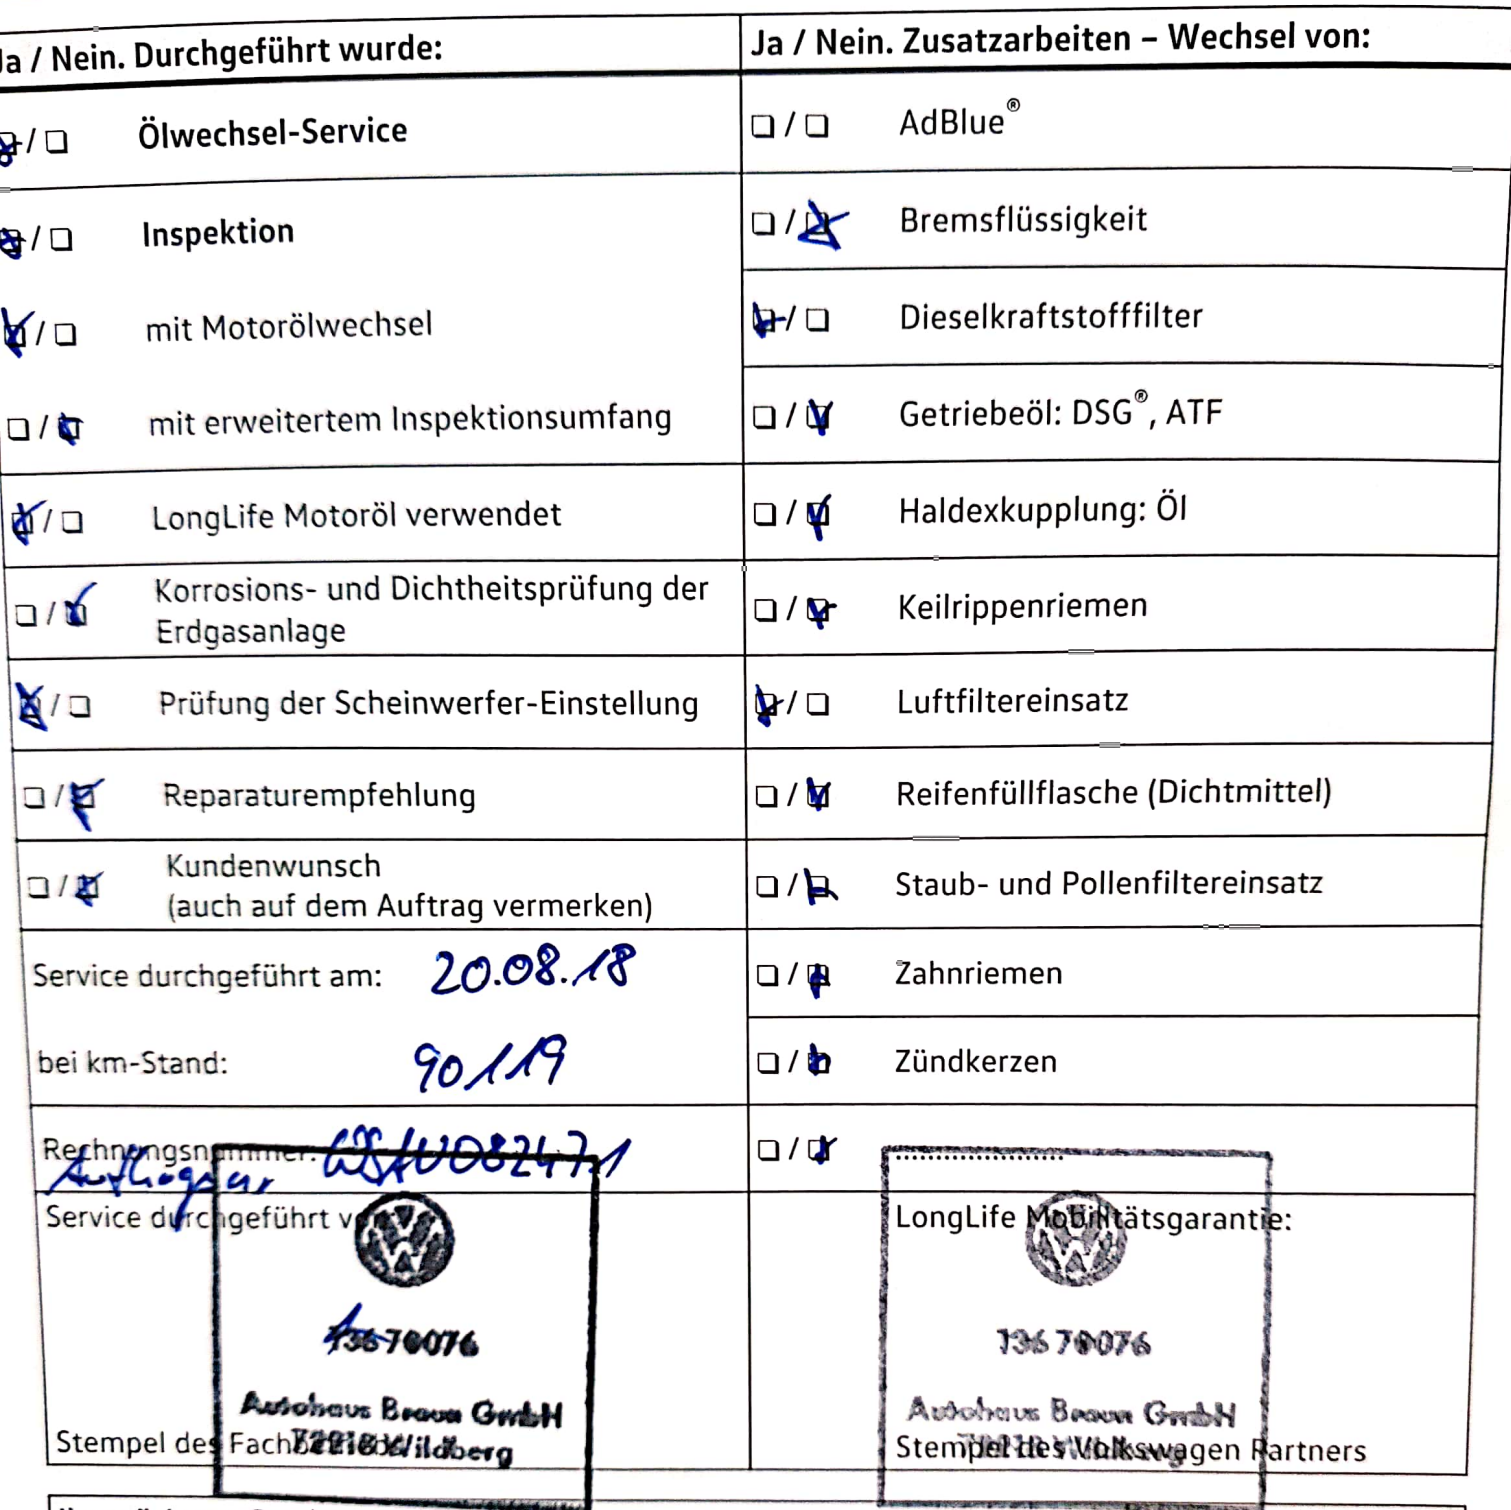 Ja / Nein. Durchgeführt wurde:
Ölwechsel-Service
Inspektion
mit Motorölwechsel
mit erweitertem Inspektionsumfang
LongLife Motoröl verwendet
Korrosions- und Dichtheitsprüfung der
Erdgasanlage
Prüfung der Scheinwerfer-Einstellung
Reparaturempfehlung
Kundenwunsch
(auch auf dem Auftrag vermerken)
Service durchgeführt am: 20.08.18
bei km-Stand: 90119
Rechnungsnummer:
Service durchgeführt
13670076
Autohaus Braun GmbH
72218 Wildberg
Stempel des
Ja / Nein. Zusatzarbeiten – Wechsel von:
AdBlue®
Bremsflüssigkeit
Dieselkraftstofffilter
Getriebeöl: DSG®, ATF
Haldexkupplung: Öl
Keilrippenriemen
Luftfiltereinsatz
Reifenfüllflasche (Dichtmittel)
Staub- und Pollenfiltereinsatz
Zahnriemen
Zündkerzen
LongLife Mobilitätsgarantie:
13670076
Autohaus Braun GmbH
Stempel des Volkswagen Partners